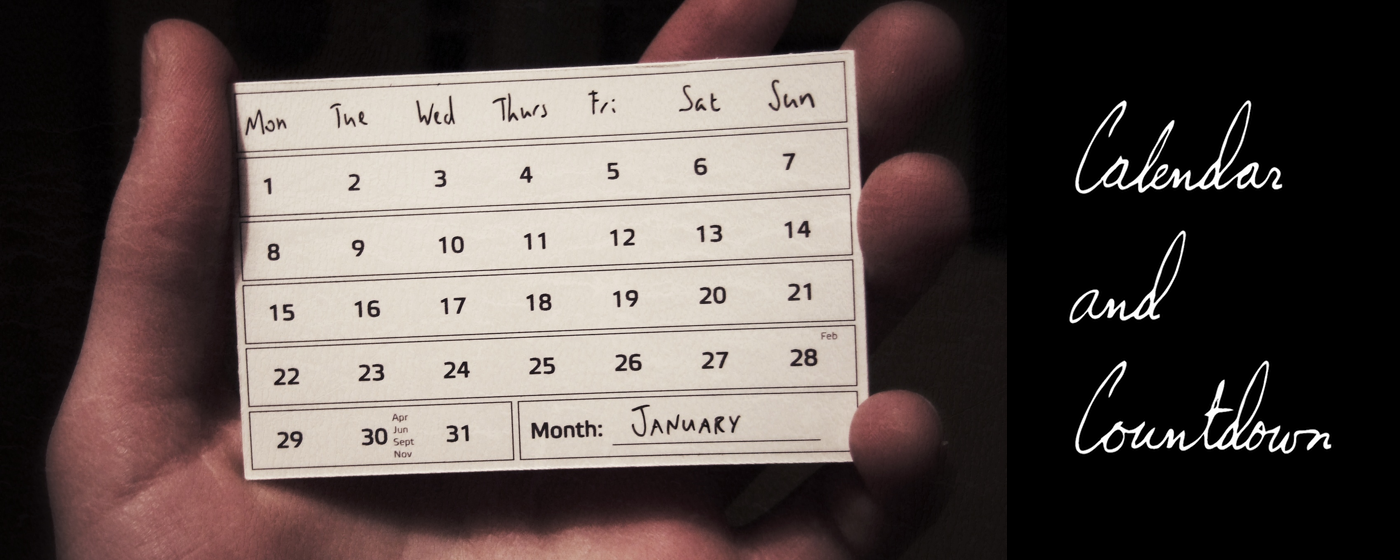 Mon Tue Wed Thurs Fri Sat Sun
1 2 3 4 5 6 7
8 9 10 11 12 13 14
15 16 17 18 19 20 21
Feb
22 23 24 25 26 27 28
Apr
Jun
Sept
Nov
29 30 31
Month: JANUARY
Calendar
and
Countdown